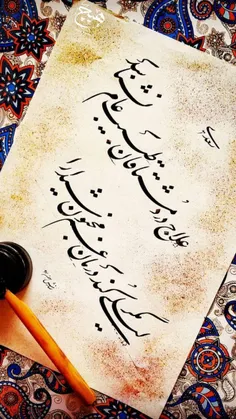 سعدی
علاج درد مشتاقان طبیب عام نشناسد
مگر لیلی کند درمان غم مجنون شیدا را